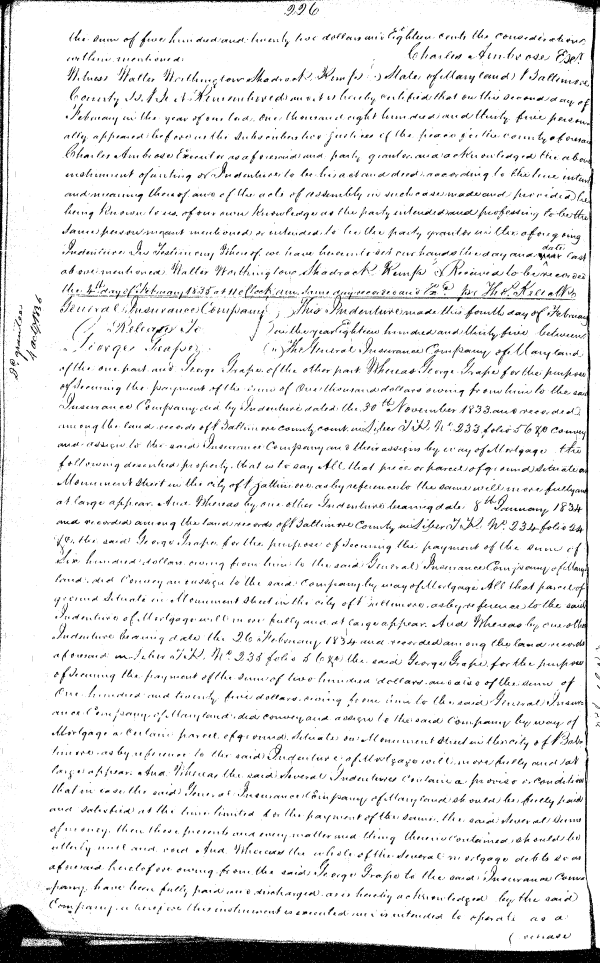 226
the sum of five hundred and twenty five dollars and Eighteen cents the consideration
within mentioned. Charles Ambrose Exr
Witness Walter Worthington Shadrack Kemp State of Maryland Baltimore
County Sc. Be it Remembered and it is hereby certified that on this second day of
February in the year of our Lord one thousand eight hundred and thirty five person
ally appeared before us the subscribers two justices of the peace for the county aforesaid
Charles Ambrose Executor as aforesaid and party grantor and acknowledged the above
instrument of writing or Indenture to be his act and deed according to the true intent
and meaning thereof and of the acts of assembly in such case made and provided he
being known to us of our own knowledge as the party intended and professing to be the
same person meant mentioned or intended to be the party grantor in the aforegoing
Indenture In Testimony Whereof we have hereunto set our hands the day and date last
above mentioned Walter Worthington Shadrack Kemp Received to be recorded
the 4th day of February 1835 at 11 oClock am same day recorded and Exd per Thos Kell Clk
General Insurance Company This Indenture made this fourth day of February
Release To in the year Eighteen hundred and thirty five between
George Grape The General Insurance Company of Maryland
of the one part and George Grape of the other part Whereas George Grape for the purpose
of Securing the payment of the sum of One thousand dollars owing from him to the said
Insurance Company did by Indenture dated the 30th November 1833 and recorded
among the land records of Baltimore county court in Liber T.K. No. 233 folio 56 &c convey
and assign to the said Insurance Company and their assigns by way of Mortgage the
following described property that is to say All that piece or parcel of ground situate on
Monument Street in the city of Baltimore as by reference to the same will more fully and
at large appear. And Whereas by one other Indenture bearing date 8th January 1834
and recorded among the land records of Baltimore County in Liber T.K. No. 234 folio 24
&c. the said George Grape for the purpose of Securing the payment of the sum of
Six hundred dollars owing from him to the said General Insurance Company of Mary
land did convey and assign to the said Company by way of Mortgage All that parcel of
ground Situate in Monument street in the city of Baltimore, as by reference to the said
Indenture of Mortgage will more fully and at large appear. And Whereas by one other
Indenture bearing date the 26 February 1834 and recorded among the land records
aforesaid in Liber T.K. No 235 folio 56 &c the said George Grape, for the purpose
of Securing the payment of the sum of two hundred dollars and also of the sum of
One hundred and twenty five dollars owing from him to the said General Insur
ance Company of Maryland did convey and assign to the said Company by way of
Mortgage a certain parcel of ground situate on Monument street in the city of Balti
more as by reference to the said Indenture of Mortgage will more fully and at
large appear. And Whereas the said several Indentures contain a proviso or condition
that in case the said General Insurance Company of Maryland should be fully paid
and satisfied at the time limited for the payment of the same, the said several sums
of money, then these presents and every matter and thing therein contained should be
utterly null and void And Whereas the whole of the several mortgage debts so as
aforesaid heretofore owing from the said George Grape to the said Insurance Com
pany have been fully paid and discharged as is hereby acknowledged by the said
Company, wherefore this instrument is executed and is intended to operate as a
release